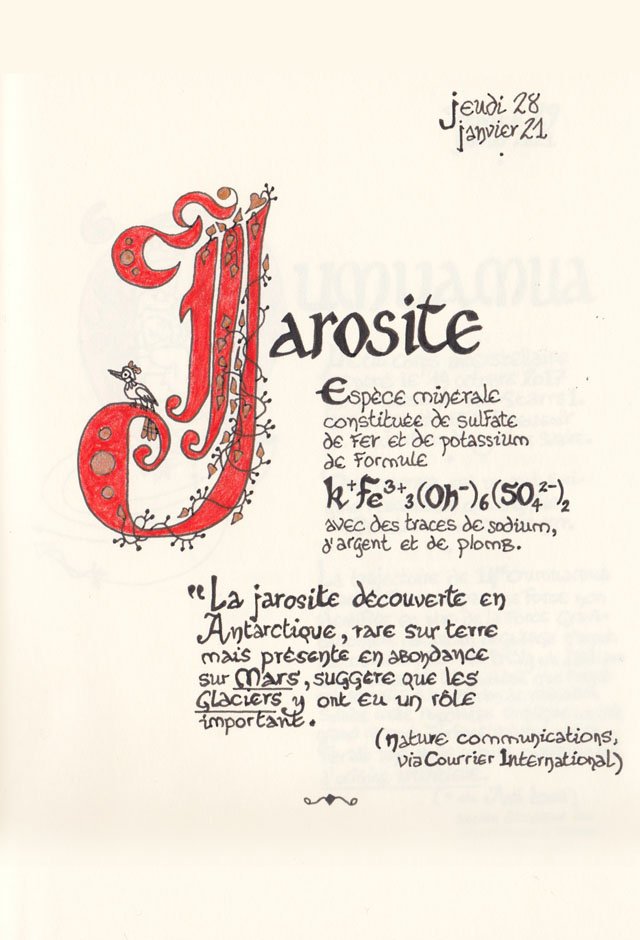 jeudi 28
janvier 21
Jarosite
Espèce minérale
constituée de sulfate
de fer et de potassium
de formule
K⁺Fe³⁺₃(OH⁻)₆(SO₄²⁻)₂
avec des traces de sodium,
d'argent et de plomb.
"La jarosite découverte en
Antarctique, rare sur terre
mais présente en abondance
sur Mars, suggère que les
Glaciers y ont eu un rôle
important.
(nature communications,
via Courrier International)